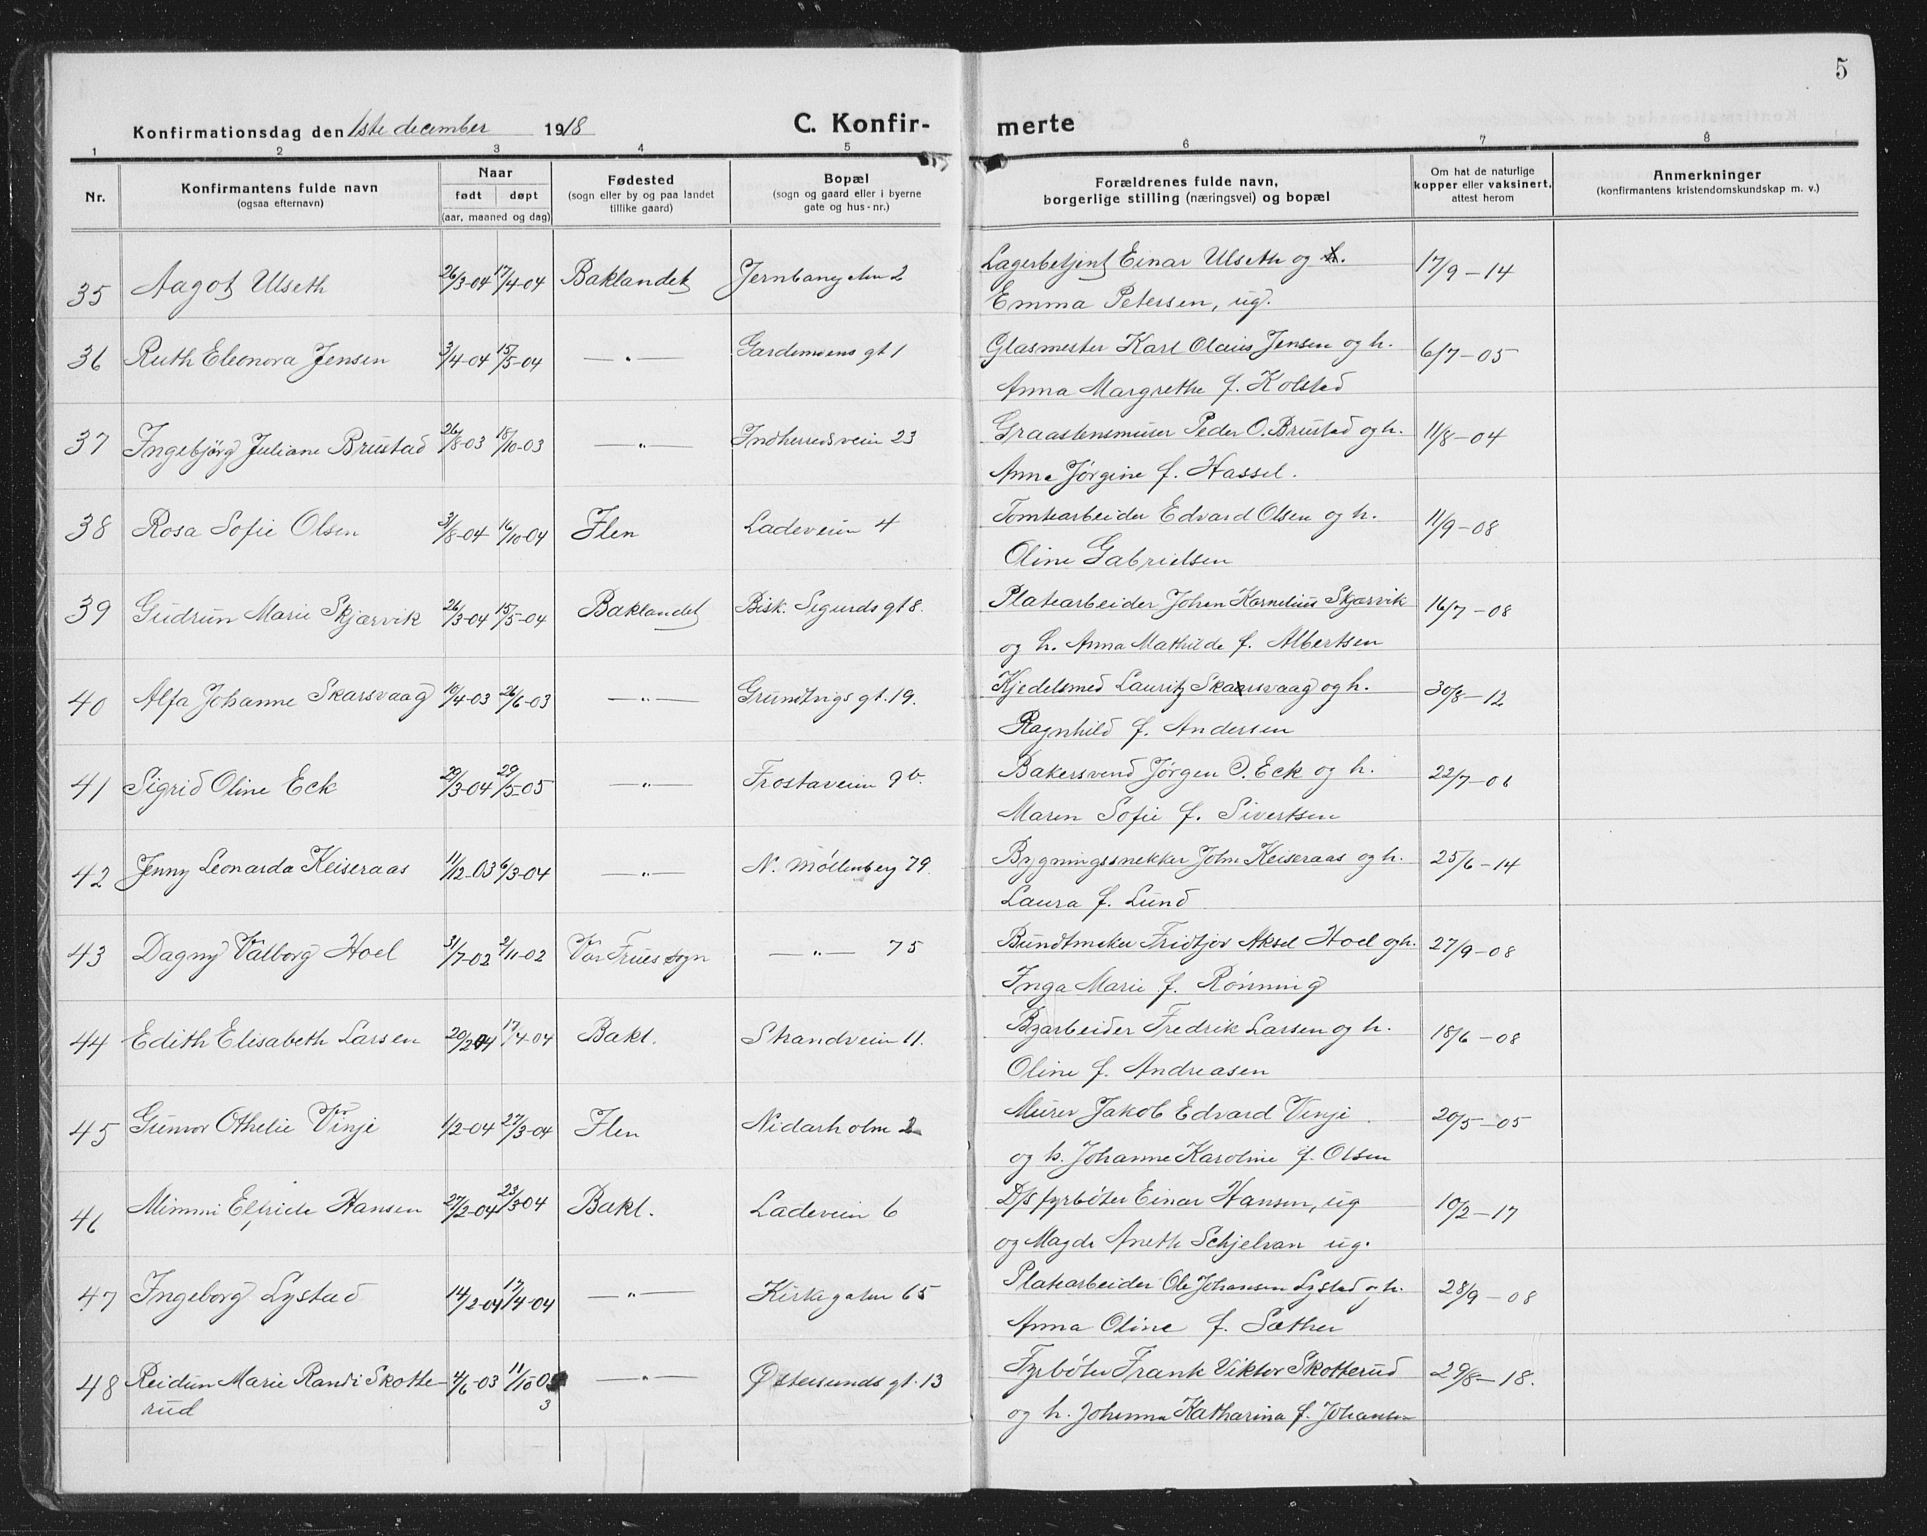 5
Konfirmationsdag den 1ste december 1918 C. Konfir- merte
1 2 3 4 5 6 7 8
Nr. Konfirmantens fulde navn (ogsaa efternavn) Naar født døpt (aar, maaned og dag) Fødested (sogn eller by og paa landet tillike gaard) Bopæl (sogn og gaard eller i byerne gate og hus-nr.) Forældrenes fulde navn, borgerlige stilling (næringsvei) og bopæl Om hat de naturlige kopper eller vaksinert, attest herom Anmerkninger (konfirmantens kristendomskundskap m. v.)
35 Aagot Ulseth 26/3-04 17/4-04 Baklandet Jernbanegaten 2 Lagerbetjent Einar Ulseth og h. 17/9-14
Emma Petersen, ug.
36 Ruth Eleonora Jensen 3/4-04 15/5-04 —"— Gardemoens gt 1 Glasmester Karl Olaus Jensen og h. 6/7-05
Anna Margrethe f. Kolstad
37 Ingebjørg Juliane Brustad 26/8-03 18/10-03 —"— Indherredsveien 23 Graastensmurer Peder O. Brustad og h. 11/8-04
Anna Jørgine f. Hassel.
38 Rosa Sofie Olsen 3/8-04 16/10-04 Ilen Ladeveien 4 Tomtearbeider Edvard Olsen og h. 11/9-08
Oline Gabrielsen
39 Gudrun Marie Skjærvik 26/3-04 15/5-04 Baklandet Bisk. Sigurds gt 8. Platearbeider Johan Kornelius Skjærvik 16/7-08
og h. Anna Mathilde f. Albertsen
40 Alfa Johanne Skarsvaag 19/4-03 26/6-03 —"— Grundtvigs gt. 19. Kjedelsmed Lauritz Skarsvaag og h. 30/8-12
Ragnhild f. Andersen
41 Sigrid Oline Eck 29/3-04 29/5-05 —"— Frostaveien 9 b. Bakersvend Jørgen O. Eck og h. 22/7-06
Maren Sofie f. Sivertsen
42 Jenny Leonarda Keiseraas 11/12-03 6/3-04 —"— N. Møllenberg 79. Bygningssnekker John Keiseraas og h. 25/6-14
Laura f. Lund
43 Dagny Valborg Hoel 31/7-02 2/11-02 Vor Frues sogn —"— 75 Bundtmaker Fridtjov Aksel Hoel og h. 27/9-08
Inga Marie f. Rønning
44 Edith Elisabeth Larsen 20/2-04 17/4-04 Bakl. Strandveien 11. Byarbeider Fredrik Larsen og h. 18/6-08
Oline f. Andreasen
45 Gunvor Othelie Vinje 1/2-04 27/3-04 Ilen Nidarholm 2 Murer Jakob Edvard Vinje 20/5-05
og h. Johanne Karoline f. Olsen
46 Mimmi Elfride Hansen 27/2-04 23/3 04 Bakl. Ladeveien 6 D/s fyrbøter Einar Hansen, ug 10/2-17
og Magda Aneth Schjelvan ug.
47 Ingeborg Lystad 14/2-04 17/4-04 —"— Kirkegaten 65 Platearbeider Ole Johansen Lystad og h. 28/9-08
Anna Oline f. Sæther
48 Reidun Marie Randi Skotte- 4/6-03 11/10 03 —"— Østersunds gt. 13 Fyrbøter Frank Viktor Skotterud 29/8-18.
rud og h. Johanna Katharina f. Johansen